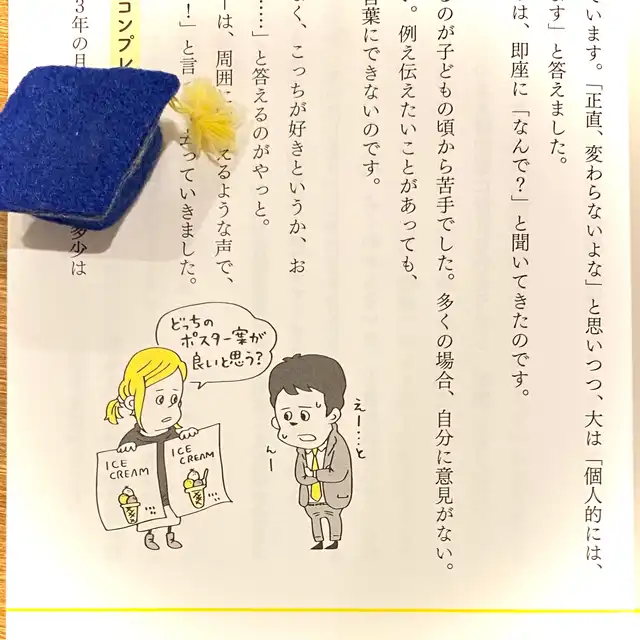 ています。「正直、変わらないよな」と思いつつ、大は「個人的には、
ます」と答えました。
は、即座に「なんで？」と聞いてきたのです。
ものが子どもの頃から苦手でした。多くの場合、自分に意見がない。
い。例え伝えたいことがあっても、
言葉にできないのです。
く、こっちが好きというか、お
……」と答えるのがやっと。
ーは、周囲に
えるような声で、
！」と言
っていきました。
コンプレ
3年の月
多少は
どっちの
ポスター案が
良いと思う？
ICE
CREAM
ICE
CREAM
えー…と
んー